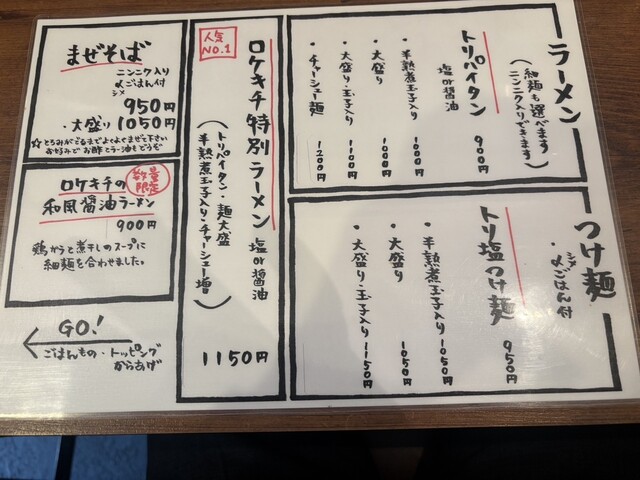 ラーメン
(細麺も選べます
ニンニク入りできます)
トリパイタン
塩or醤油
900円
・半熟煮玉子入り 1000円
・大盛り 1000円
・大盛り・玉子入り 1100円
・チャーシュー麺 1200円
つけ麺
・〆ごはん付
シメ
トリ塩つけ麺 950円
・半熟煮玉子入り 1050円
・大盛り 1050円
・大盛り・玉子入り 1150円
人気
NO.1
ロケキチ特別ラーメン 塩or醤油
(トリパイタン・麺大盛
半熟煮玉子入り・チャーシュー増)
1150円
まぜそば
ニンニク入り
〆ごはん付
シメ
950円
・大盛り 1050円
☆とろみがでるまでよくよくまぜて下さい
お好みでお酢とラー油もどうぞ
ロケキチの
数量
限定
和風醤油ラーメン
900円
鶏がらと煮干しのスープに
細麺を合わせました。
GO!
ごはんもの・トッピング
からあげ